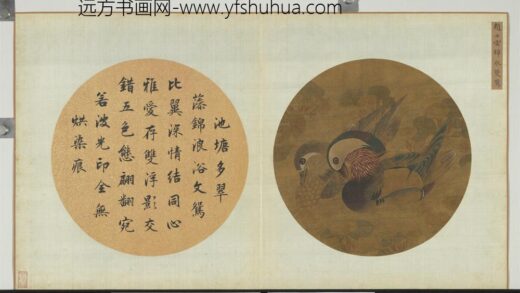 远方书画网-www.yfshuhua.com
池塘多翠
藻錦浪浴文鴛
比翼深情結同心
雅愛存雙浮影交
錯五色態翩翻宛
若波光印全無
烘染痕